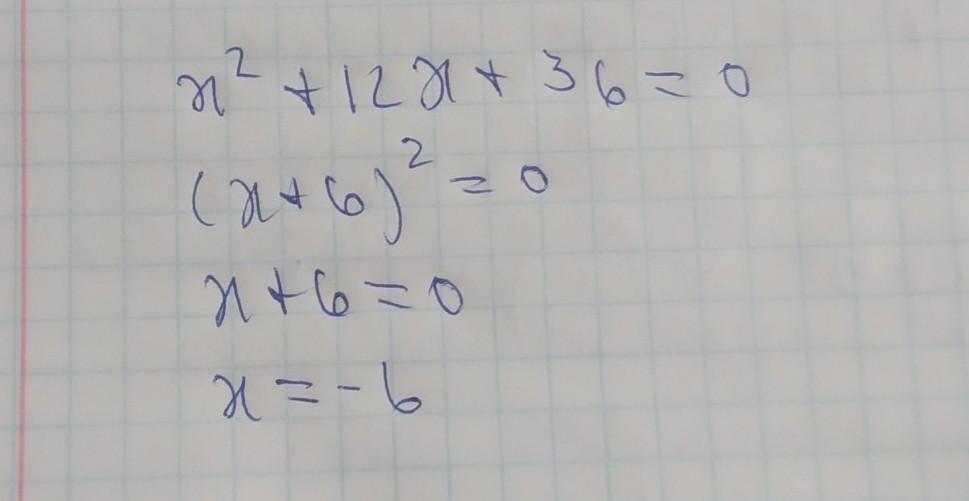 x² + 12x + 36 = 0
(x + 6)² = 0
x + 6 = 0
x = -6